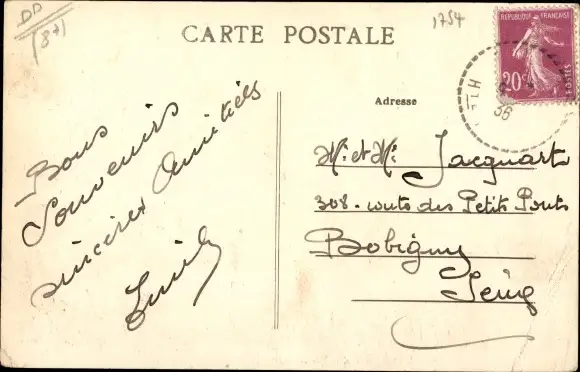 DD
(87)
1754
CARTE POSTALE
REPUBLIQUE FRANÇAISE
20c
POSTES
36
Adresse
Bons
Souvenirs
sincères Amitiés
Emile
Mr. et Me. Jacquart
308 - route des Petits Ponts
Bobigny
Seine